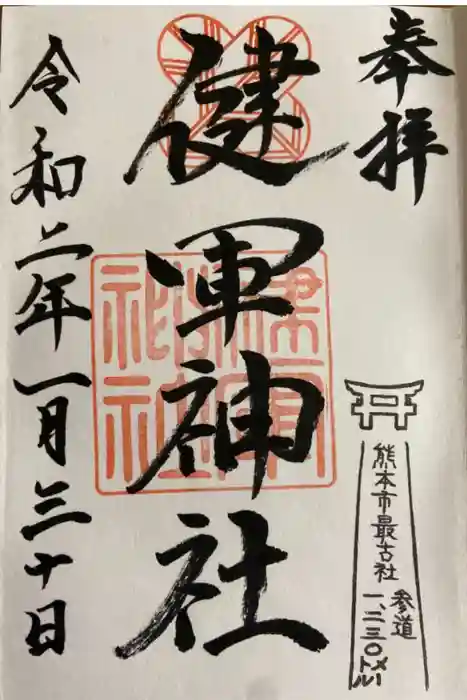 奉拝
熊本市最古社
参道
一、二三〇メートル
健軍神社
令和二年一月三十日